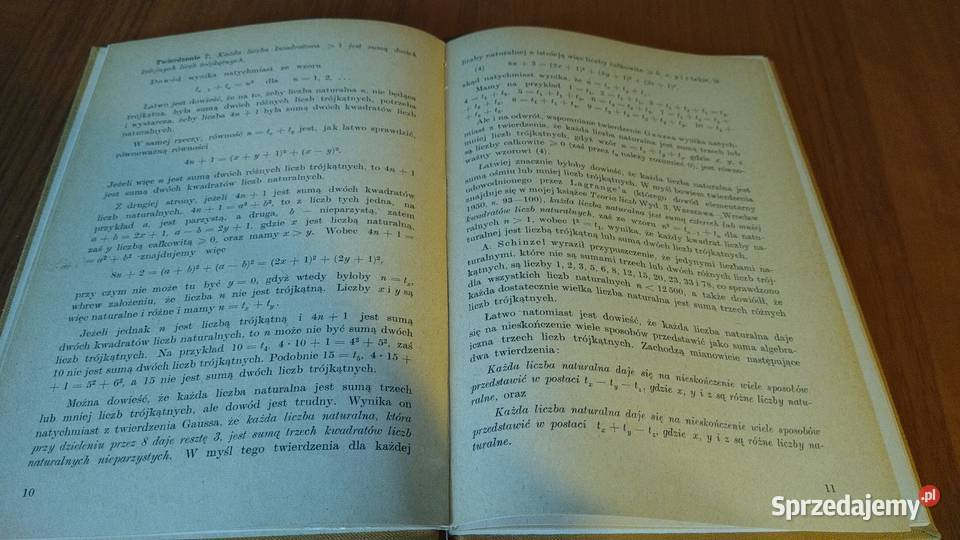 Twierdzenie 7. Każda liczba kwadratowa > 1 jest sumą dwóch
kolejnych liczb trójkątnych.
Dowód wynika natychmiast ze wzoru
dla n = 1, 2, ...
Łatwo jest dowieść, że na to, żeby liczba naturalna n, nie będąca
trójkątną, była sumą dwóch różnych liczb trójkątnych, potrzeba
i wystarcza, żeby liczba 4n + 1 była sumą dwóch kwadratów liczb
naturalnych.
W samej rzeczy, równość n = tₓ + t_y jest, jak łatwo sprawdzić,
równoważną równości
4n + 1 = (x + y + 1)² + (x − y)².
Jeżeli więc n jest sumą dwóch różnych liczb trójkątnych, to 4n + 1
jest sumą dwóch kwadratów liczb naturalnych.
Z drugiej strony, jeżeli 4n + 1 jest sumą dwóch kwadratów
liczb naturalnych, 4n + 1 = a² + b², to z liczb tych jedna, na
przykład a, jest parzystą, a druga, b — nieparzystą, zatem
a + b = 2x + 1, a − b = 2y + 1, gdzie x jest liczbą naturalną,
zaś y liczbą całkowitą ⩾ 0, oraz mamy x > y. Wobec 4n + 1 =
= a² + b² znajdujemy więc
8n + 2 = (a + b)² + (a − b)² = (2x + 1)² + (2y + 1)²,
przy czym nie może tu być y = 0, gdyż wtedy byłoby n = tₓ,
wbrew założeniu, że liczba n nie jest trójkątną. Liczby x i y są
więc naturalne i różne i mamy n = tₓ + t_y.
Jeżeli jednak n jest liczbą trójkątną i 4n + 1 jest sumą
dwóch kwadratów liczb naturalnych, to n może nie być sumą dwóch
liczb trójkątnych. Na przykład 10 = t₄, 4 · 10 + 1 = 4² + 5², zaś
10 nie jest sumą dwóch liczb trójkątnych. Podobnie 15 = t₅, 4 · 15 +
+ 1 = 5² + 6², a 15 nie jest sumą dwóch liczb trójkątnych.
Można dowieść, że każda liczba naturalna jest sumą trzech
lub mniej liczb trójkątnych, ale dowód jest trudny. Wynika on
natychmiast z twierdzenia Gaussa, że każda liczba naturalna, która
przy dzieleniu przez 8 daje resztę 3, jest sumą trzech kwadratów liczb
naturalnych nieparzystych. W myśl tego twierdzenia dla każdej
10
liczby naturalnej n istnieją więc liczby całkowite ⩾ 0, x, y i z takie, że
(4) 8n + 3 = (2x + 1)² + (2y + 1)² + (2z + 1)²,
skąd natychmiast wynika, że n = tₓ + t_y + t_z.
Mamy na przykład
Ale i na odwrót, wspomniane twierdzenie Gaussa wynika natych-
miast z twierdzenia, że każda liczba naturalna jest sumą trzech lub
mniej liczb trójkątnych, gdyż wzór n = tₓ + t_y + t_z, gdzie x, y, z
są liczby całkowite ⩾ 0 (zaś przez t₀ należy rozumieć 0), jest równo-
ważny wzorowi (4).
Łatwiej znacznie byłoby dowieść, że każda liczba naturalna jest
sumą ośmiu lub mniej liczb trójkątnych. W myśl bowiem twierdzenia
udowodnionego przez Lagrange'a (którego dowód elementarny
znajduje się w mojej książce Teoria liczb Wyd. 3, Warszawa—Wrocław
1950, s. 93—100), każda liczba naturalna jest sumą czterech lub mniej
kwadratów liczb naturalnych, zaś ze wzoru n² = tₙ₋₁ + tₙ dla natu-
ralnych n > 1, wobec 1² = t₁, wynika, że każdy kwadrat liczby na-
turalnej jest liczbą trójkątną lub sumą dwóch liczb trójkątnych.
A. Schinzel wyraził przypuszczenie, że jedynymi liczbami na-
turalnymi, które nie są sumami trzech lub dwóch różnych liczb trój-
kątnych, są liczby 1, 2, 3, 5, 6, 8, 12, 15, 20, 23, 33 i 78, co sprawdzono
dla wszystkich liczb naturalnych n < 12 500, a także dowiódł, że
każda dostatecznie wielka liczba naturalna jest sumą trzech różnych
liczb trójkątnych.
Łatwo natomiast jest dowieść, że każda liczba naturalna daje
się na nieskończenie wiele sposobów przedstawić jako suma algebra-
iczna trzech liczb trójkątnych. Zachodzą mianowicie następujące
dwa twierdzenia:
Każda liczba naturalna daje się na nieskończenie wiele sposobów
przedstawić w postaci tₓ − t_y − t_z, gdzie x, y i z są różne liczby natu-
ralne, oraz
Każda liczba naturalna daje się na nieskończenie wiele sposobów
przedstawić w postaci tₓ + t_y − t_z, gdzie x, y i z są różne liczby na-
turalne.
11
Sprzedajemy.pl